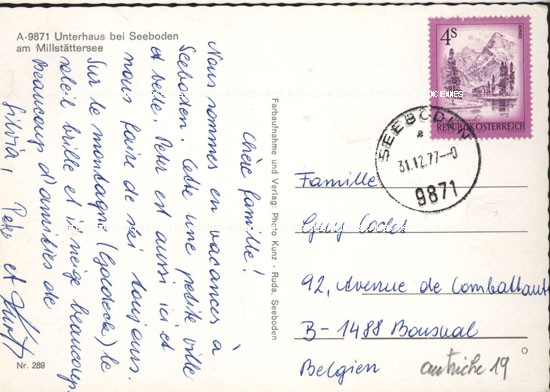 A-9871 Unterhaus bei Seeboden
am Millstättersee
Chère famille!
Nous sommes en vacances à
Seeboden. Cette une petite ville
et belle. Peter est aussi ici et
nous faire de ski toujours.
Sur le montagne (Goldeck) le
soleil brille et il neige beaucoup.
Beaucoup d'amitiés de
Silvia, Peter et
Nr. 289
Farbaufnahme und Verlag: Photo Kunz - Ruda, Seeboden
4S
REPUBLIK ÖSTERREICH
SEEBODEN
31.12.77--0
9871
Famille
Guy
92, Avenue de Combattants
B-1488 Bousval
Belgien
autriche 19